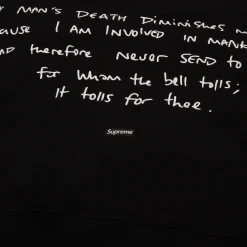 MAN'S DEATH DIMINISHES
I AM INVOLVED IN
therefore NEVER SEND TO
for whom the bell tolls;
It tolls for thee.
Supreme